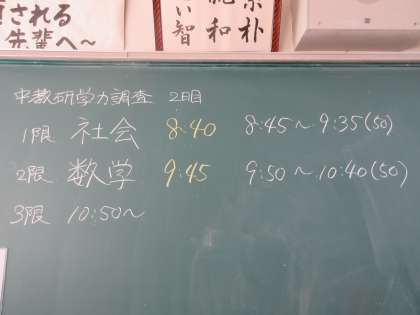 される
先輩へ～
い智
和
朴
中教研学力調査 2日目
1限 社会 8:40 8:45～9:35(50)
2限 数学 9:45 9:50～10:40(50)
3限 10:50～